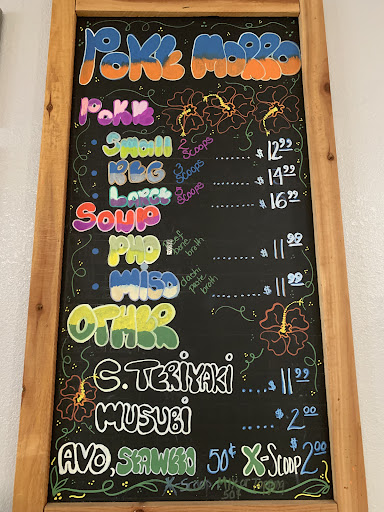 POKE MORRO
POKE
Small 2 Scoops ...... $12.99
REG 3 Scoops ...... $14.99
LARGE 5 Scoops ...... $16.99
SOUP
PHO beef bone broth ...... $11.99
MISO dashi paste broth .... $11.99
OTHER
C. TERiYAKi .... $11.99
MUSUBi ... $2.00
AVO, SEAWEED 50¢ X-SCOOP $2.00
X-Scoop
50¢